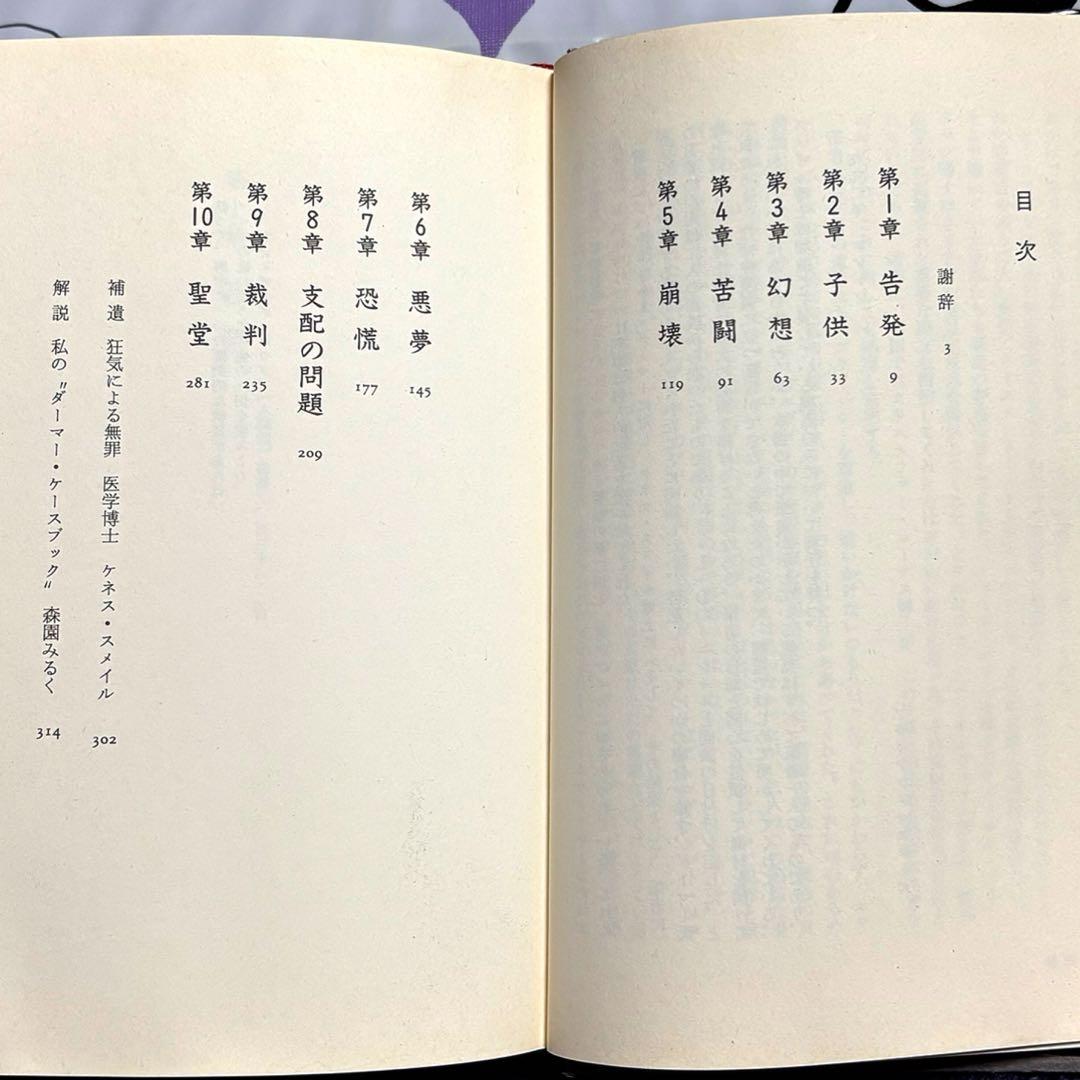 目次
謝辞 3
第1章 告発 9
第2章 子供 33
第3章 幻想 63
第4章 苦闘 91
第5章 崩壊 119
第6章 悪夢 145
第7章 恐慌 177
第8章 支配の問題 209
第9章 裁判 235
第10章 聖堂 281
補遺 狂気による無罪 医学博士 ケネス・スメイル 302
解説 私の〝ダーマー・ケースブック〟 森園みるく 314